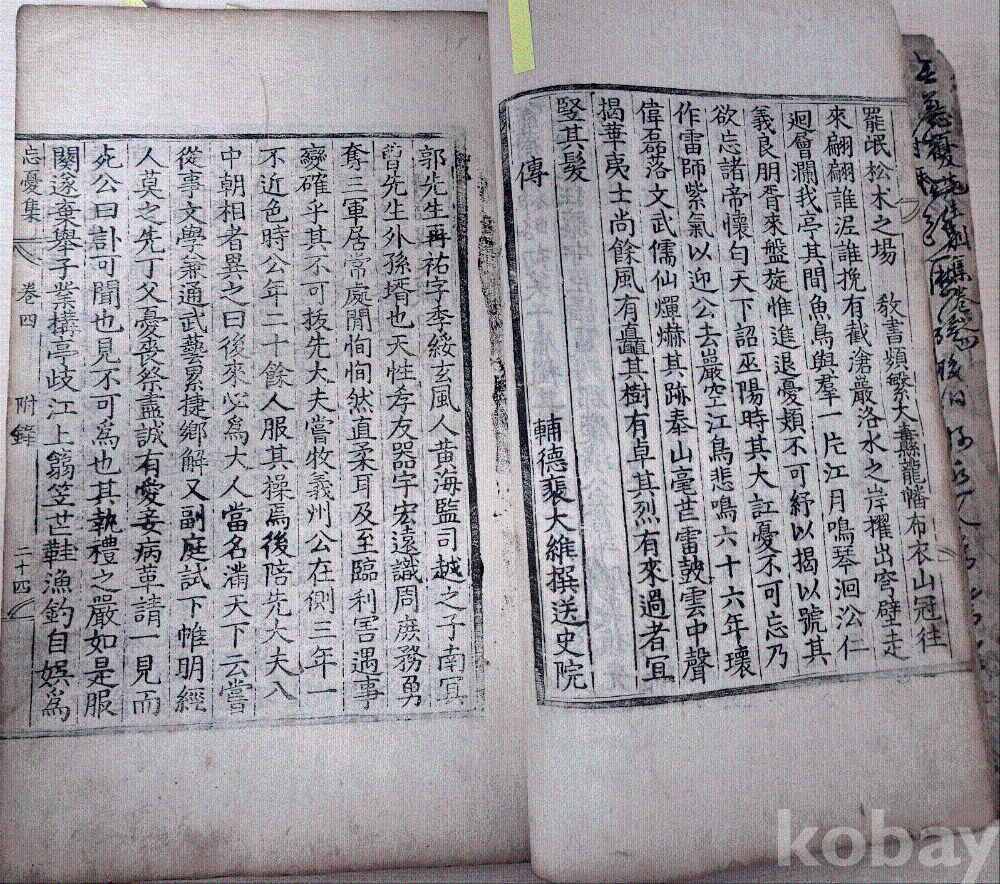 罷氓松木之場 教書頻繁大纛龍幡布衣山冠往
來翩翩誰浧誰挽有截滄巖洛水之岸擢出穹壁走
迴層瀾我亭其間魚鳥與羣一片江月鳴琴洄㳂仁
義良朋胥來盤旋惟進退憂頰不可紓以揭以號其
欲忘諸帝懷匄天下詔巫陽時其大訌憂不可忘乃
作雷師紫氣以迎公去巖空江鳥悲鳴六十六年瓌
偉磊落文武儒仙燀爀其跡泰山毫芒雷鼓雲中聲
揭華夷士尚餘風有矗其樹有卓其烈有來過者宜
竪其髮
傳 輔德裵大維撰送史院
郭先生再祐字季綏玄風人黄海監司越之子南冥
曺先生外孫壻也天性孝友器宇宏遠識周廢務勇
奪三軍居常處閒恂恂然直柔耳及至臨利害遇事
變確乎其不可拔先大夫嘗牧義州公在側三年一
不近色時公年二十餘人服其操焉後陪先大夫入
中朝相者異之曰後來必爲大人當名滿天下云嘗
從事文學兼通武藝累捷鄕解又副庭試下帷明經
人莫之先丁父憂喪祭盡誠有愛妾病革請一見而
死公曰訃可聞也見不可爲也其執禮之嚴如是服
闋遂棄擧子業搆亭歧江上篛笠芒鞋漁釣自娛爲
忘憂集 卷四 附錄 二十四
kobay